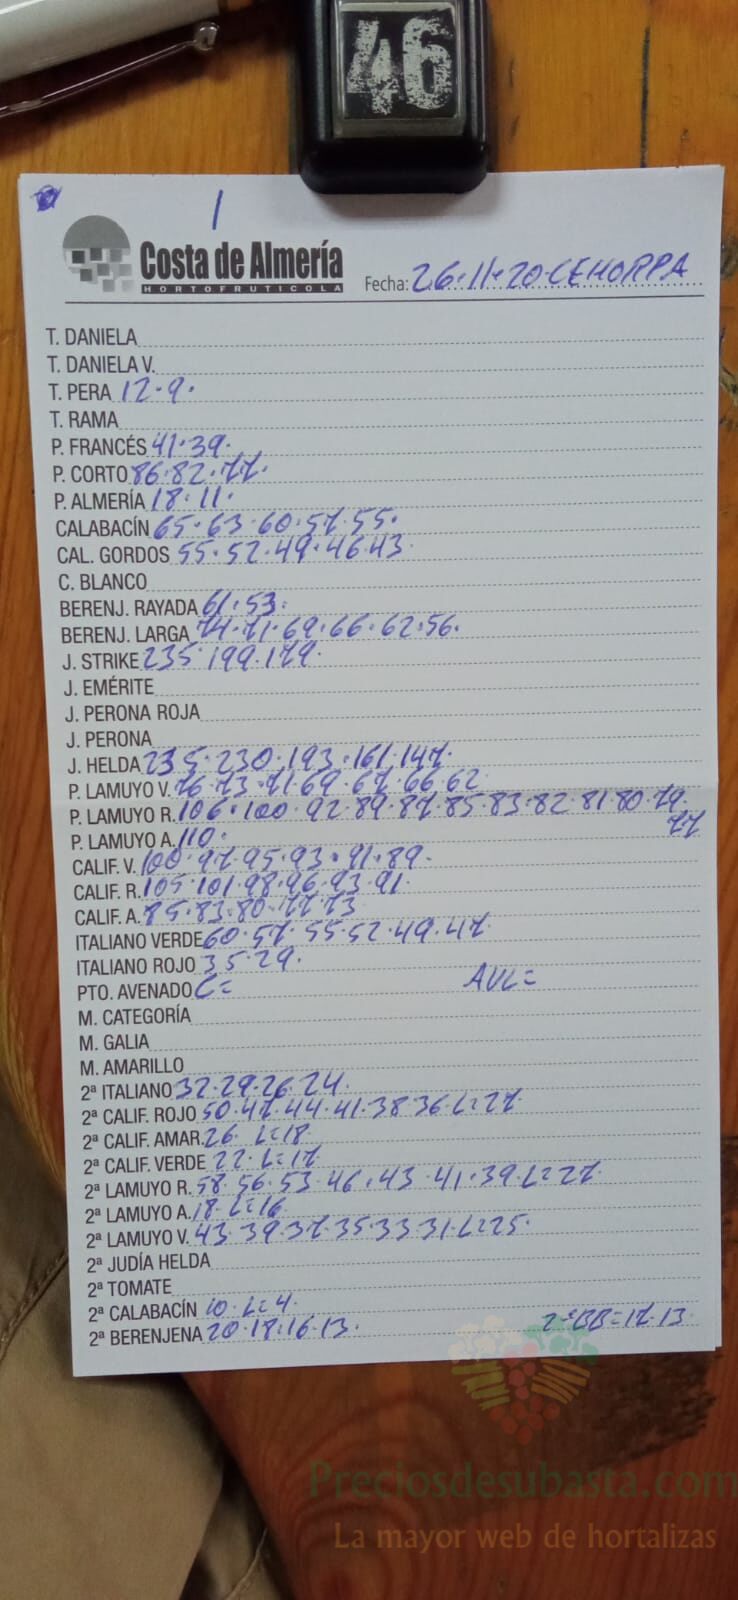 46
1
Costa de Almería
HORTOFRUTICOLA
Fecha: 26·11·20·CEHORPA
T. DANIELA
T. DANIELA V.
T. PERA 12·9·
T. RAMA
P. FRANCÉS 41·39·
P. CORTO 86·82·77·
P. ALMERÍA 18·11·
CALABACÍN 65·63·60·57·55·
CAL. GORDOS 55·52·49·46·43·
C. BLANCO
BERENJ. RAYADA 61·53·
BERENJ. LARGA 74·71·69·66·62·56·
J. STRIKE 235·199·179·
J. EMÉRITE
J. PERONA ROJA
J. PERONA
J. HELDA 235·230·193·161·147·
P. LAMUYO V. 76·73·71·69·67·66·62
P. LAMUYO R. 106·100·92·89·87·85·83·82·81·80·79·
77
P. LAMUYO A. 110·
CALIF. V. 100·97·95·93·91·89·
CALIF. R. 105·101·98·96·93·91·
CALIF. A. 85·83·80·77·73
ITALIANO VERDE 60·57·55·52·49·47·
ITALIANO ROJO 35·29·
PTO. AVENADO C= AVL=
M. CATEGORÍA
M. GALIA
M. AMARILLO
2ª ITALIANO 32·29·26·24·
2ª CALIF. ROJO 50·47·44·41·38·36·L=27·
2ª CALIF. AMAR. 26·L=18
2ª CALIF. VERDE 22·L=17
2ª LAMUYO R. 58·56·53·46·43·41·39·L=27·
2ª LAMUYO A. 18·L=16
2ª LAMUYO V. 43·39·37·35·33·31·L=25·
2ª JUDÍA HELDA
2ª TOMATE
2ª CALABACÍN 10·L=4·
2ª BERENJENA 20·18·16·13· 2ªBB=17·13·
Preciosdesubasta.com
La mayor web de hortalizas